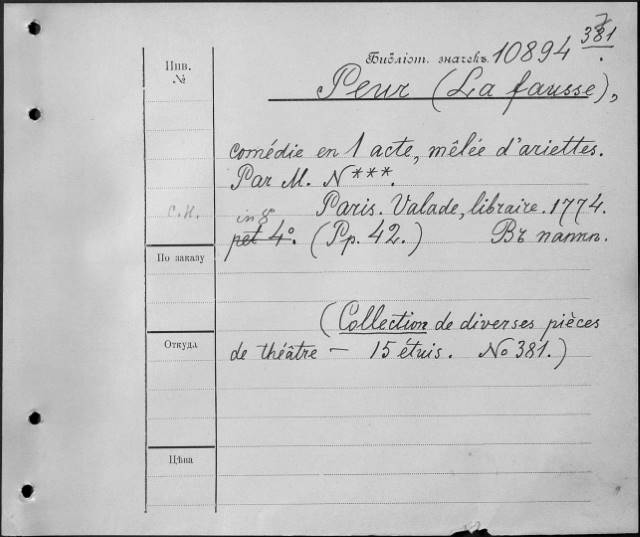 381
Инв.
№
Библіот. значекъ 10894
Peur (La fausse),
comédie en 1 acte, mêlée d'ariettes.
Par M. N***.
С.К. in 8° Paris. Valade, libraire. 1774.
pet 4°. (Pp. 42.) Въ папкѣ.
По заказу
(Collection de diverses pièces
Откуда
de théâtre — 15 étuis. No 381.)
Цѣна